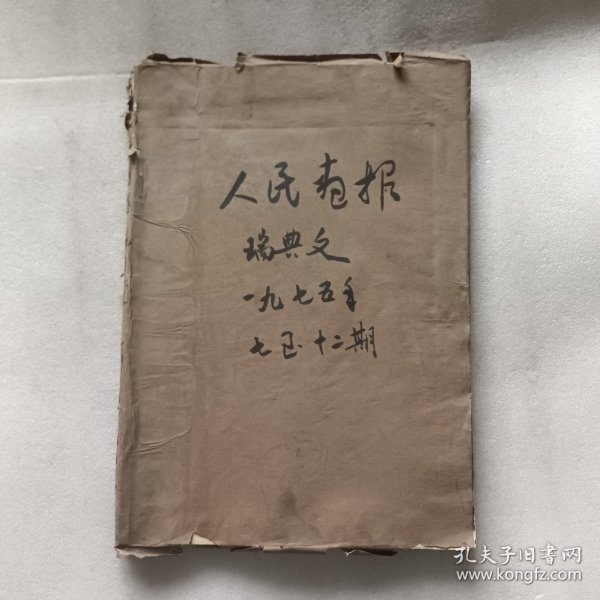 人民画报
瑞典文
一九七五年
七至十二期
孔夫子旧書网
www.kongfz.com